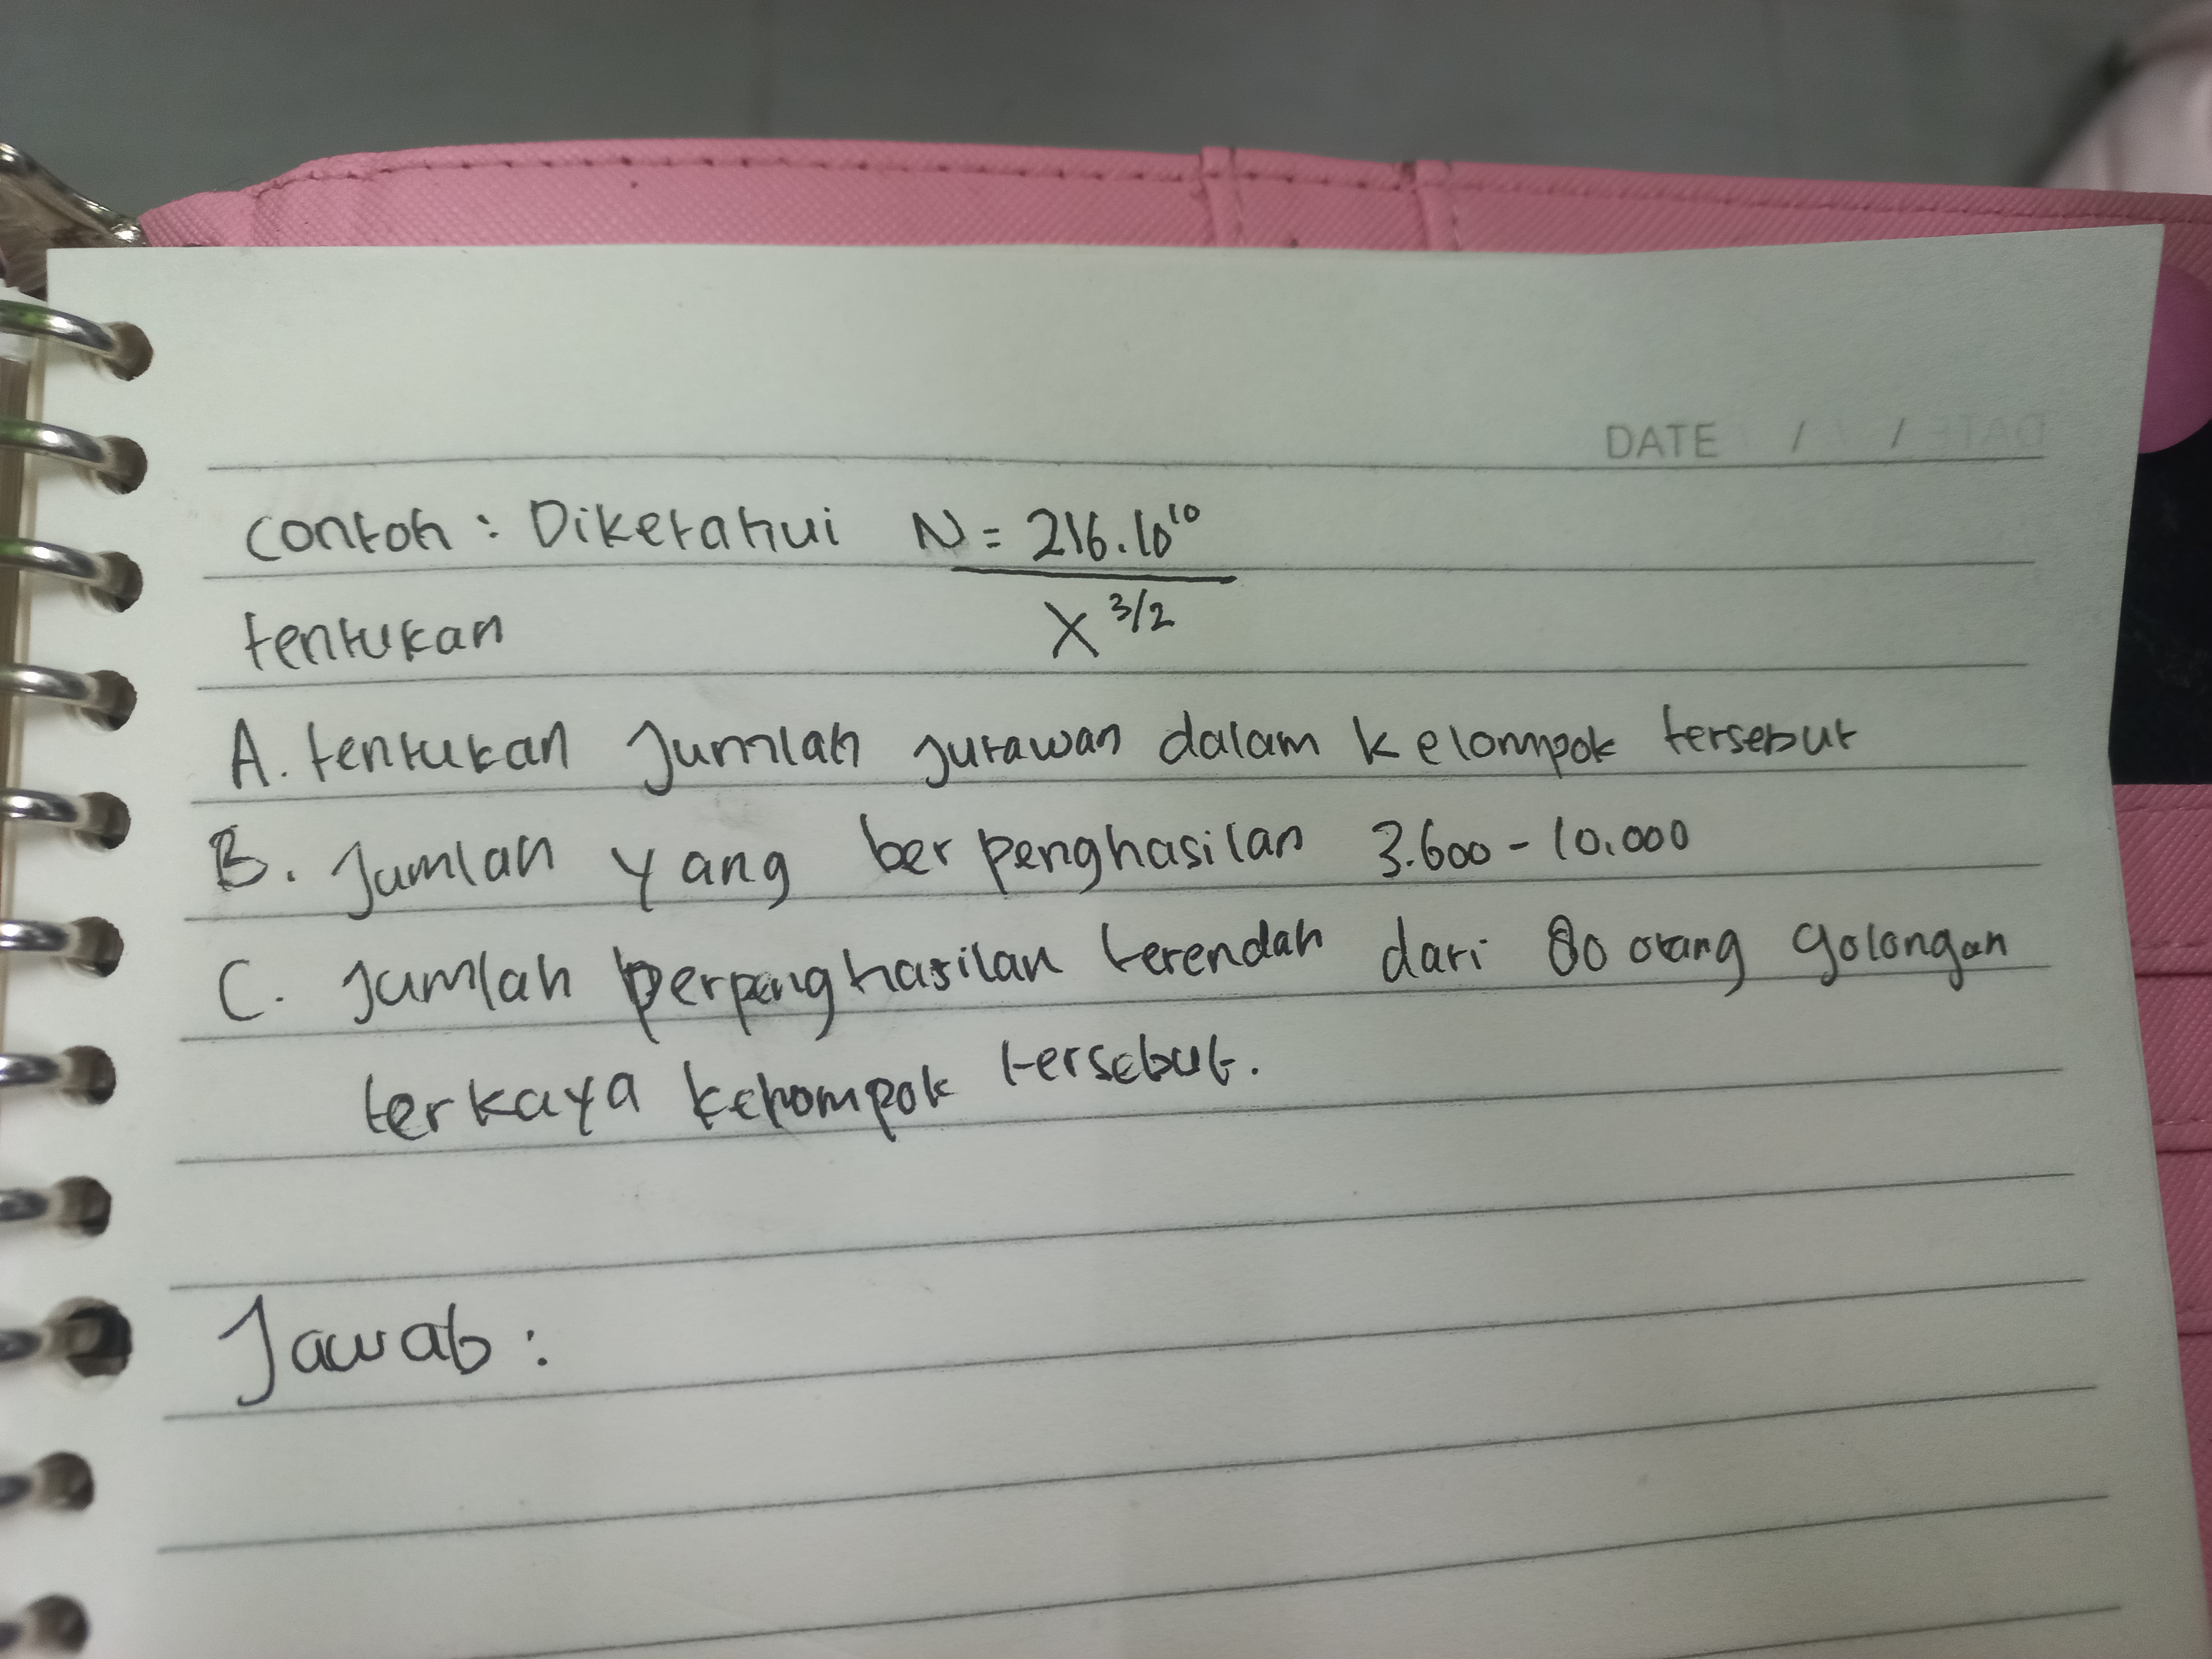 DATE / /
Contoh : Diketahui N = 216.10¹⁰
tentukan X ³/²
A. tentukan Jumlah Jutawan dalam kelompok tersebut
B. Jumlah yang berpenghasilan 3.600 - 10.000
C. Jumlah perpenghasilan terendah dari 80 orang golongan
terkaya kelompok tersebut.
Jawab :